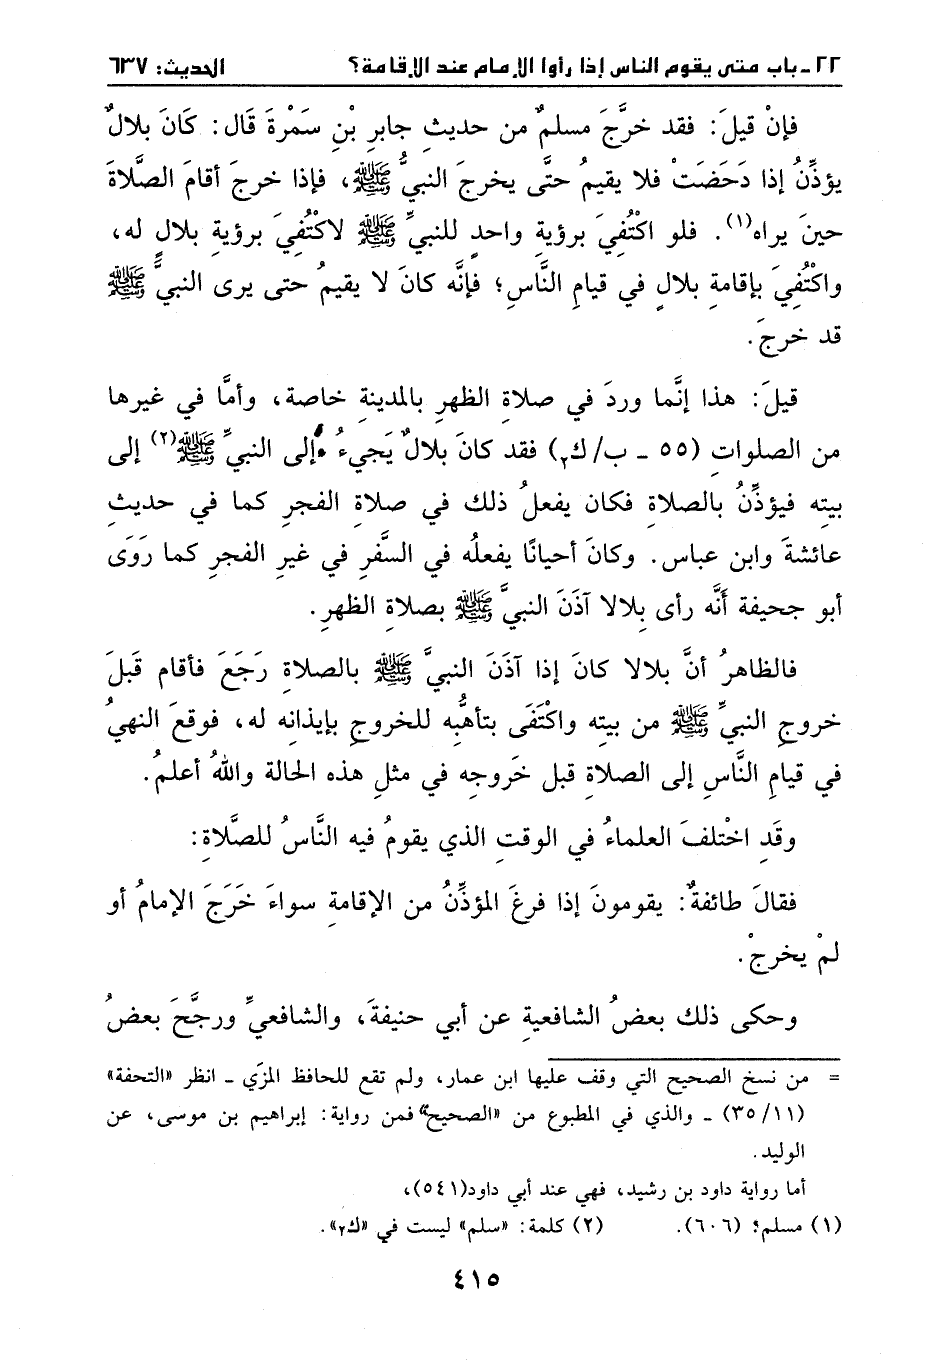 ٢٢ ـ باب متى يقوم الناس إذا رأوا الإمام عند الإقامة؟ الحديث: ٦٣٧
فإنْ قيلَ: فقد خرَّجَ مسلمٌ من حديثِ جابرِ بْنِ سَمْرةَ قَال: كَانَ بلالٌ
يؤذِّنُ إذا دَحَضَتْ فلا يقيمُ حتَّى يخرجَ النبيُّ ﷺ، فإذا خرجَ أقامَ الصَّلاةَ
حينَ يراه(١). فلو اكْتُفِيَ برؤيةِ واحدٍ للنبيِّ ﷺ لاكْتُفِيَ برؤيةِ بلالٍ له،
واكْتُفِيَ بإقامةِ بلالٍ في قيامِ النَّاسِ؛ فإنَّه كانَ لا يقيمُ حتى يرى النبيَّ ﷺ
قد خرجَ.
قيلَ: هذا إنَّما وردَ في صلاةِ الظهرِ بالمدينةِ خاصة، وأمَّا في غيرها
من الصلواتِ (٥٥ ـ ب/ك٢) فقد كانَ بلالٌ يَجيءُ إلى النبيِّ ﷺ(٢) إلى
بيته فيؤذِّنُ بالصلاةِ فكان يفعلُ ذلك في صلاةِ الفجرِ كما في حديثِ
عائشةَ وابن عباس. وكانَ أحيانًا يفعلُه في السَّفرِ في غيرِ الفجرِ كما رَوَى
أبو جحيفة أَنَّه رأى بلالا آذَنَ النبيَّ ﷺ بصلاةِ الظهرِ.
فالظاهرُ أنَّ بلالا كانَ إذا آذَنَ النبيَّ ﷺ بالصلاةِ رَجَعَ فأقام قَبلَ
خروجِ النبيِّ ﷺ من بيتِه واكْتَفَى بتأهُّبه للخروجِ بإيذانِه له، فوقعَ النهيُ
في قيامِ النَّاسِ إلى الصلاةِ قبل خَروجِه في مثلِ هذه الحالة واللهُ أعلمُ.
وقَدِ اخْتلفَ العلماءُ في الوقتِ الذي يقومُ فيه النَّاسُ للصَّلاةِ:
فقالَ طائفةٌ: يقومونَ إذا فرغَ المؤذِّنُ من الإقامةِ سواءَ خَرَجَ الإمامُ أو
لمْ يخرجْ.
وحكى ذلك بعضُ الشافعيةِ عن أبي حنيفةَ، والشافعيِّ ورجَّحَ بعضُ
= من نسخ الصحيح التي وقف عليها ابن عمار، ولم تقع للحافظ المزّي ـ انظر «التحفة»
(٣٥/١١) ـ والذي في المطبوع من «الصحيح» فمن رواية: إبراهيم بن موسى، عن
الوليد.
أما رواية داود بن رشيد، فهي عند أبي داود(٥٤١)،
(١) مسلم؛ (٦٠٦). (٢) كلمة: «سلم» ليست في «ك٢».
٤١٥